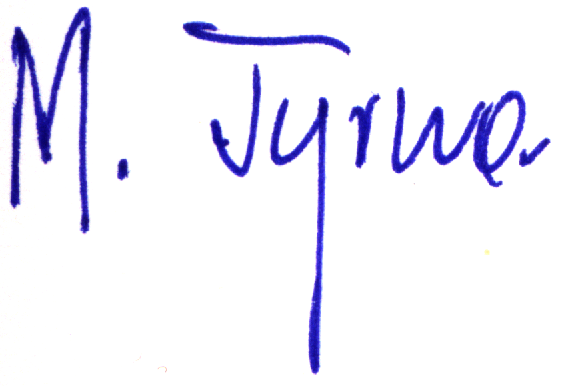 M. Tyrwa